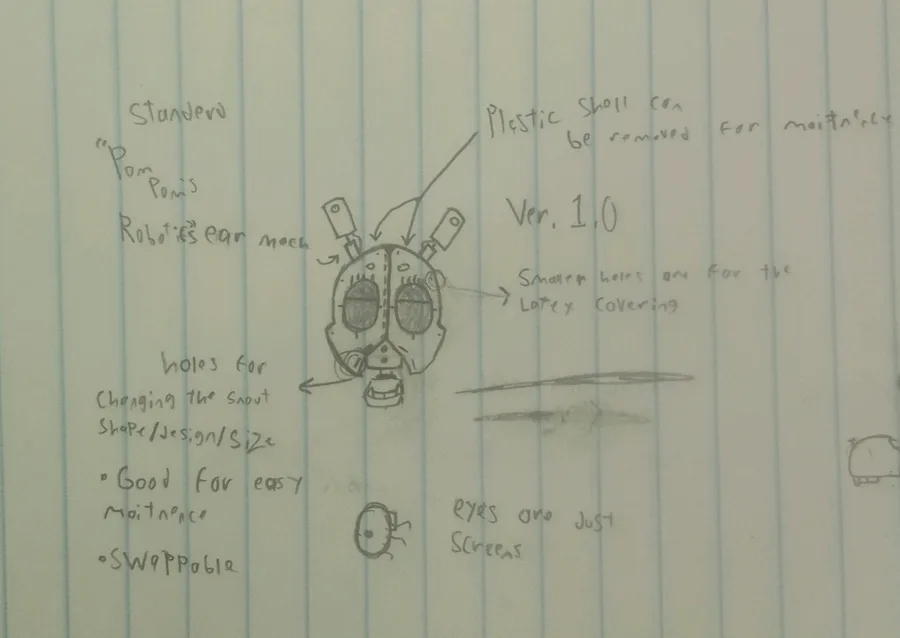 Standerd
"Pom
Pom's
Robotics" ear mech
Plastic shell can
be removed for moitnence
Ver. 1.0
Smaller holes are for the
Latex covering
holes for
Changing the snout
Shape/design/size
• Good for easy
moitnence
• Swappable
eyes are Just
Screens